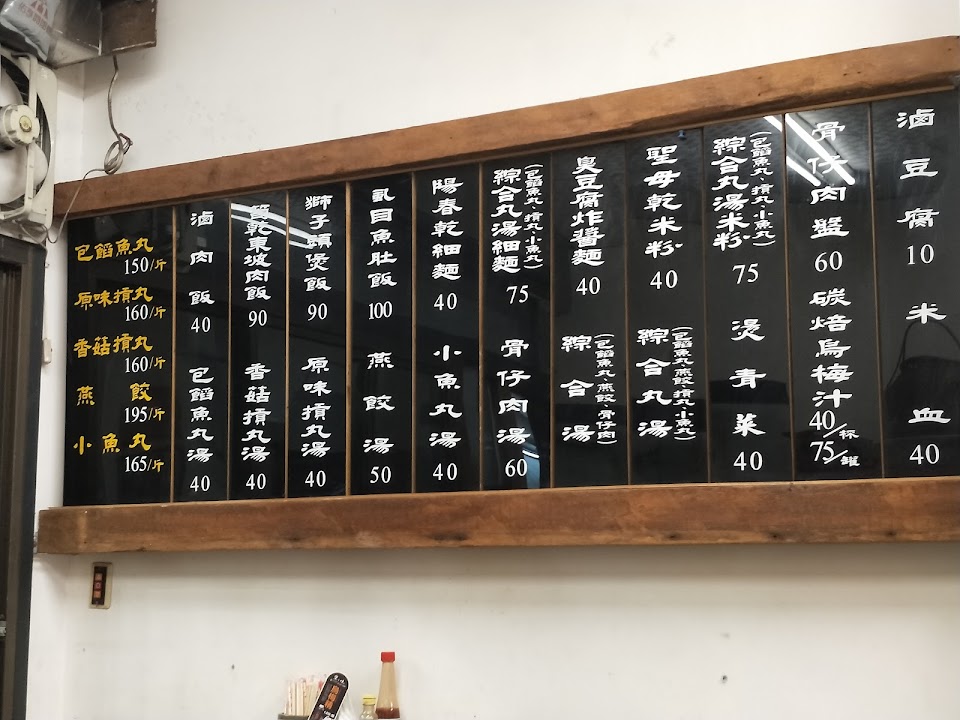 包餡魚丸
150/斤
原味摃丸
160/斤
香菇摃丸
160/斤
燕餃
195/斤
小魚丸
165/斤
滷肉飯 40
包餡魚丸湯 40
筍乾東坡肉飯 90
香菇摃丸湯 40
獅子頭煲飯 90
原味摃丸湯 40
虱目魚肚飯 100
燕餃湯 50
陽春乾細麵 40
小魚丸湯 40
(包餡魚丸、摃丸、小魚丸)
綜合丸湯細麵 75
骨仔肉湯 60
臭豆腐炸醬麵 40
(包餡魚丸、燕餃、骨仔肉)
綜合湯
聖母乾米粉 40
(包餡魚丸、燕餃、摃丸、小魚丸)
綜合丸湯
(包餡魚丸、摃丸、小魚丸)
綜合丸湯米粉 75
燙青菜 40
骨仔肉盤 60
碳焙烏梅汁
40/杯
75/罐
滷豆腐 10
米血 40